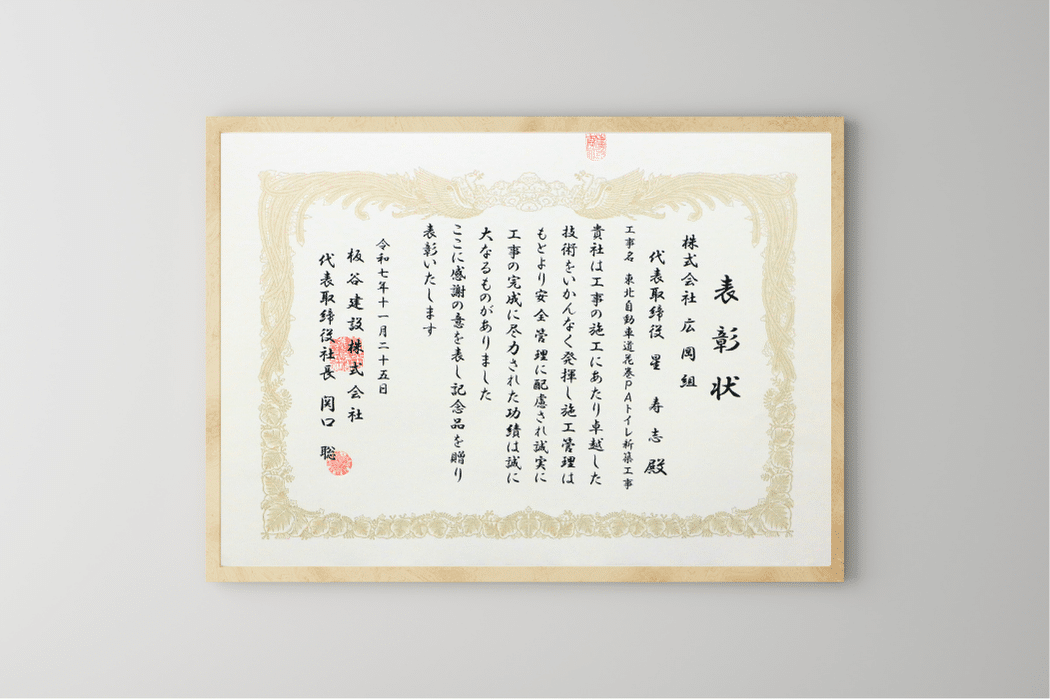 表彰状
株式会社 広岡組
代表取締役 星 寿志 殿
工事名 東北自動車道花巻PAトイレ新築工事
貴社は工事の施工にあたり卓越した
技術をいかんなく発揮し施工管理は
もとより安全管理に配慮され誠実に
工事の完成に尽力された功績は誠に
大なるものがありました
ここに感謝の意を表し記念品を贈り
表彰いたします
令和七年十一月二十五日
板谷建設株式会社
代表取締役社長 関口 聡